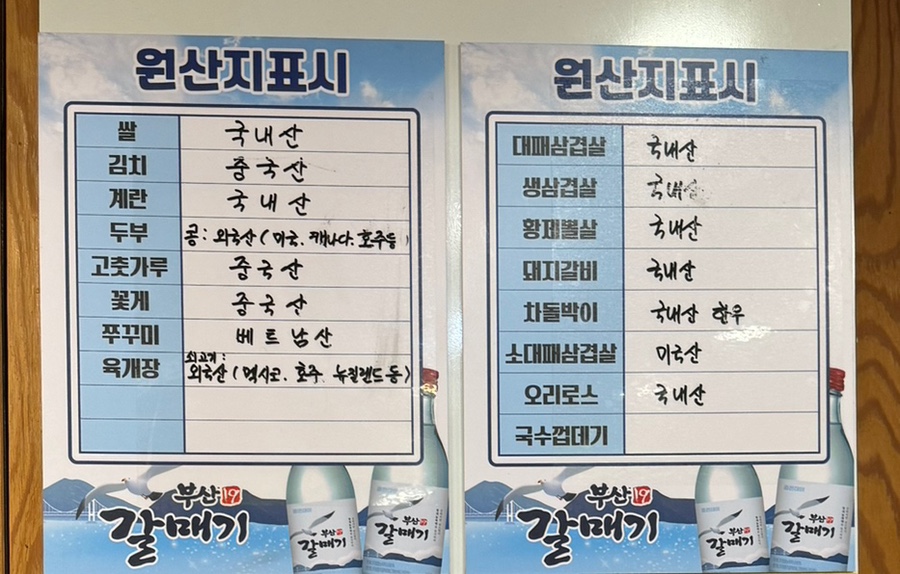 원산지표시
쌀 국내산
김치 중국산
계란 국내산
두부 콩: 외국산 (미국, 캐나다, 호주등)
고춧가루 중국산
꽃게 중국산
쭈꾸미 베트남산
육개장 쇠고기: 외국산 (멕시코, 호주, 뉴질랜드 등)
부산 19
갈매기
부산
갈매기
부산
갈매기
원산지표시
대패삼겹살 국내산
생삼겹살 국내산
황제뽈살 국내산
돼지갈비 국내산
차돌박이 국내산 한우
소대패삼겹살 미국산
오리로스 국내산
국수껍데기
부산 19
갈매기
부산
갈매기
부산
갈매기